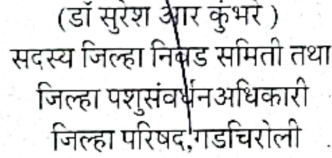 (डॉ सुरेश आर कुंभरे )
सदस्य जिल्हा निवड समिती तथा
जिल्हा पशुसंवर्धनअधिकारी
जिल्हा परिषद,गडचिरोली